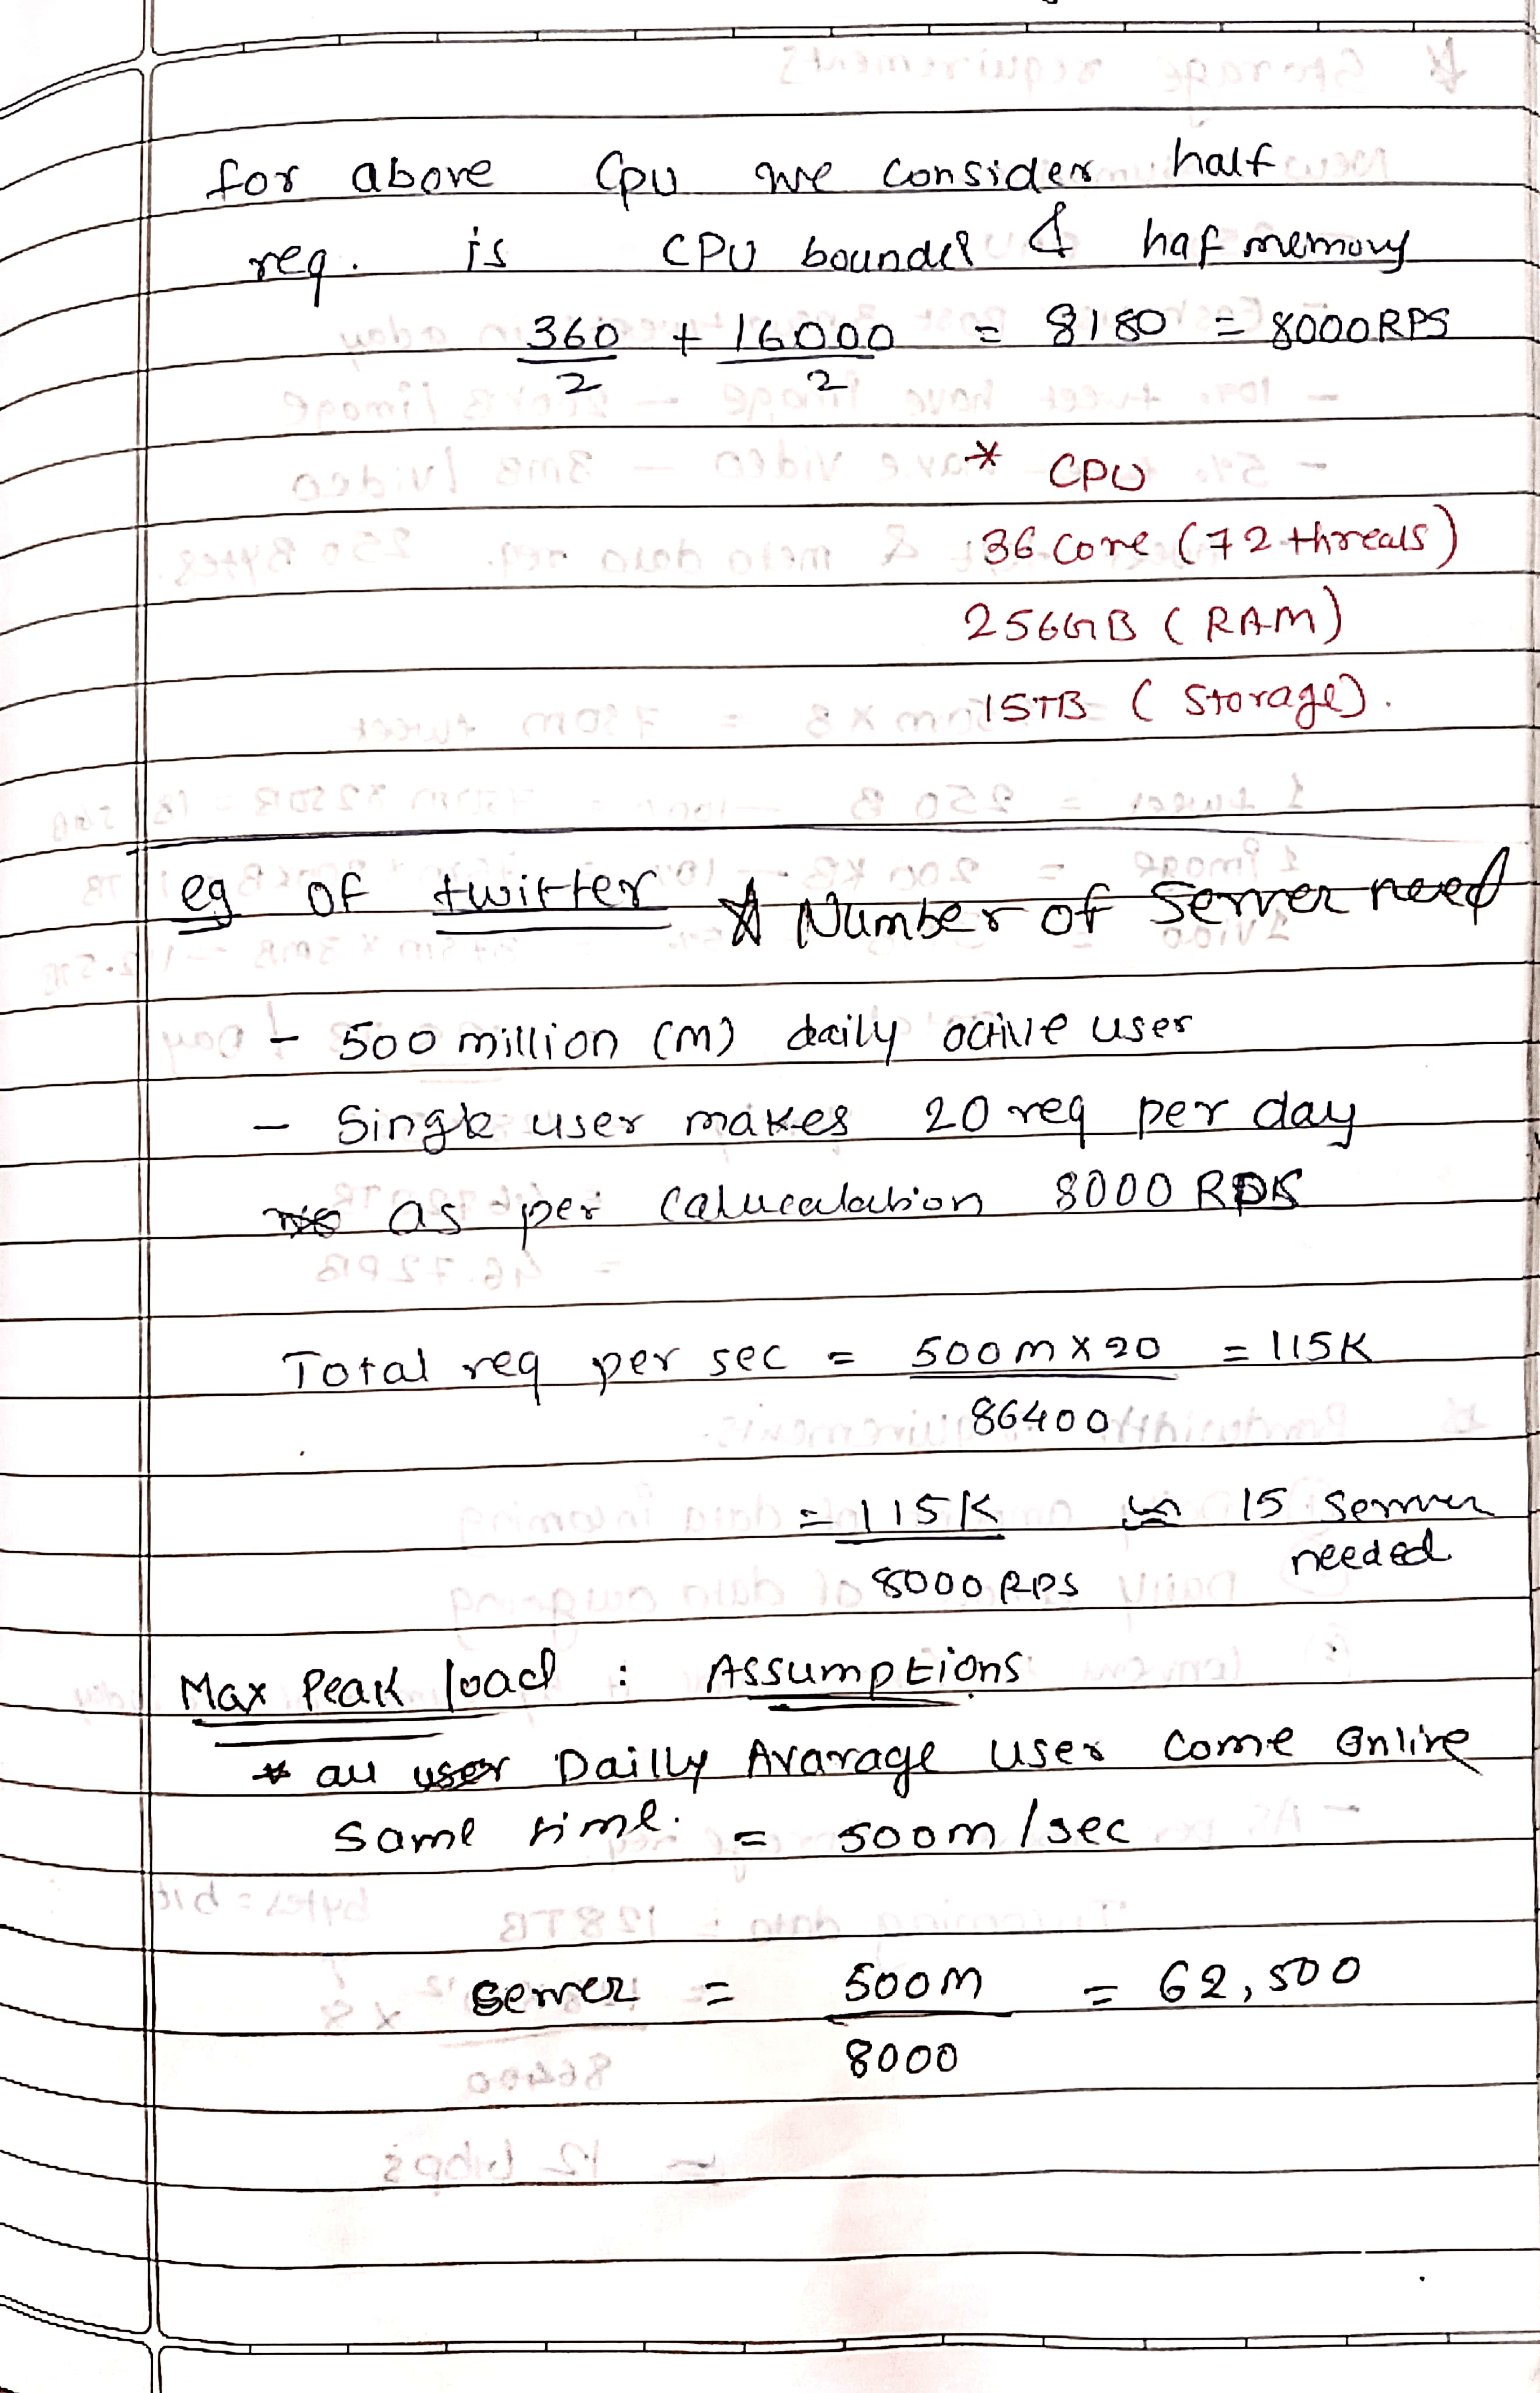 for above Cpu we consider half
req. is CPU bounded & haf memory
360/2 + 16000/2 = 8180 = 8000RPS
* CPU
36 core (72 threads)
256GB (RAM)
15TB (Storage).
eg of twitter * Number of Server need
- 500 million (m) daily active user
- Single user makes 20 req per day
as per calucalation 8000 RPS
Total req per sec = 500m x 20 / 86400 = 115K
= 115K / 8000 RPS ≈ 15 server needed
Max Peak load : Assumptions
* all user Dailly Avarage user come Online
same time. = 500m/sec
server = 500m / 8000 = 62,500